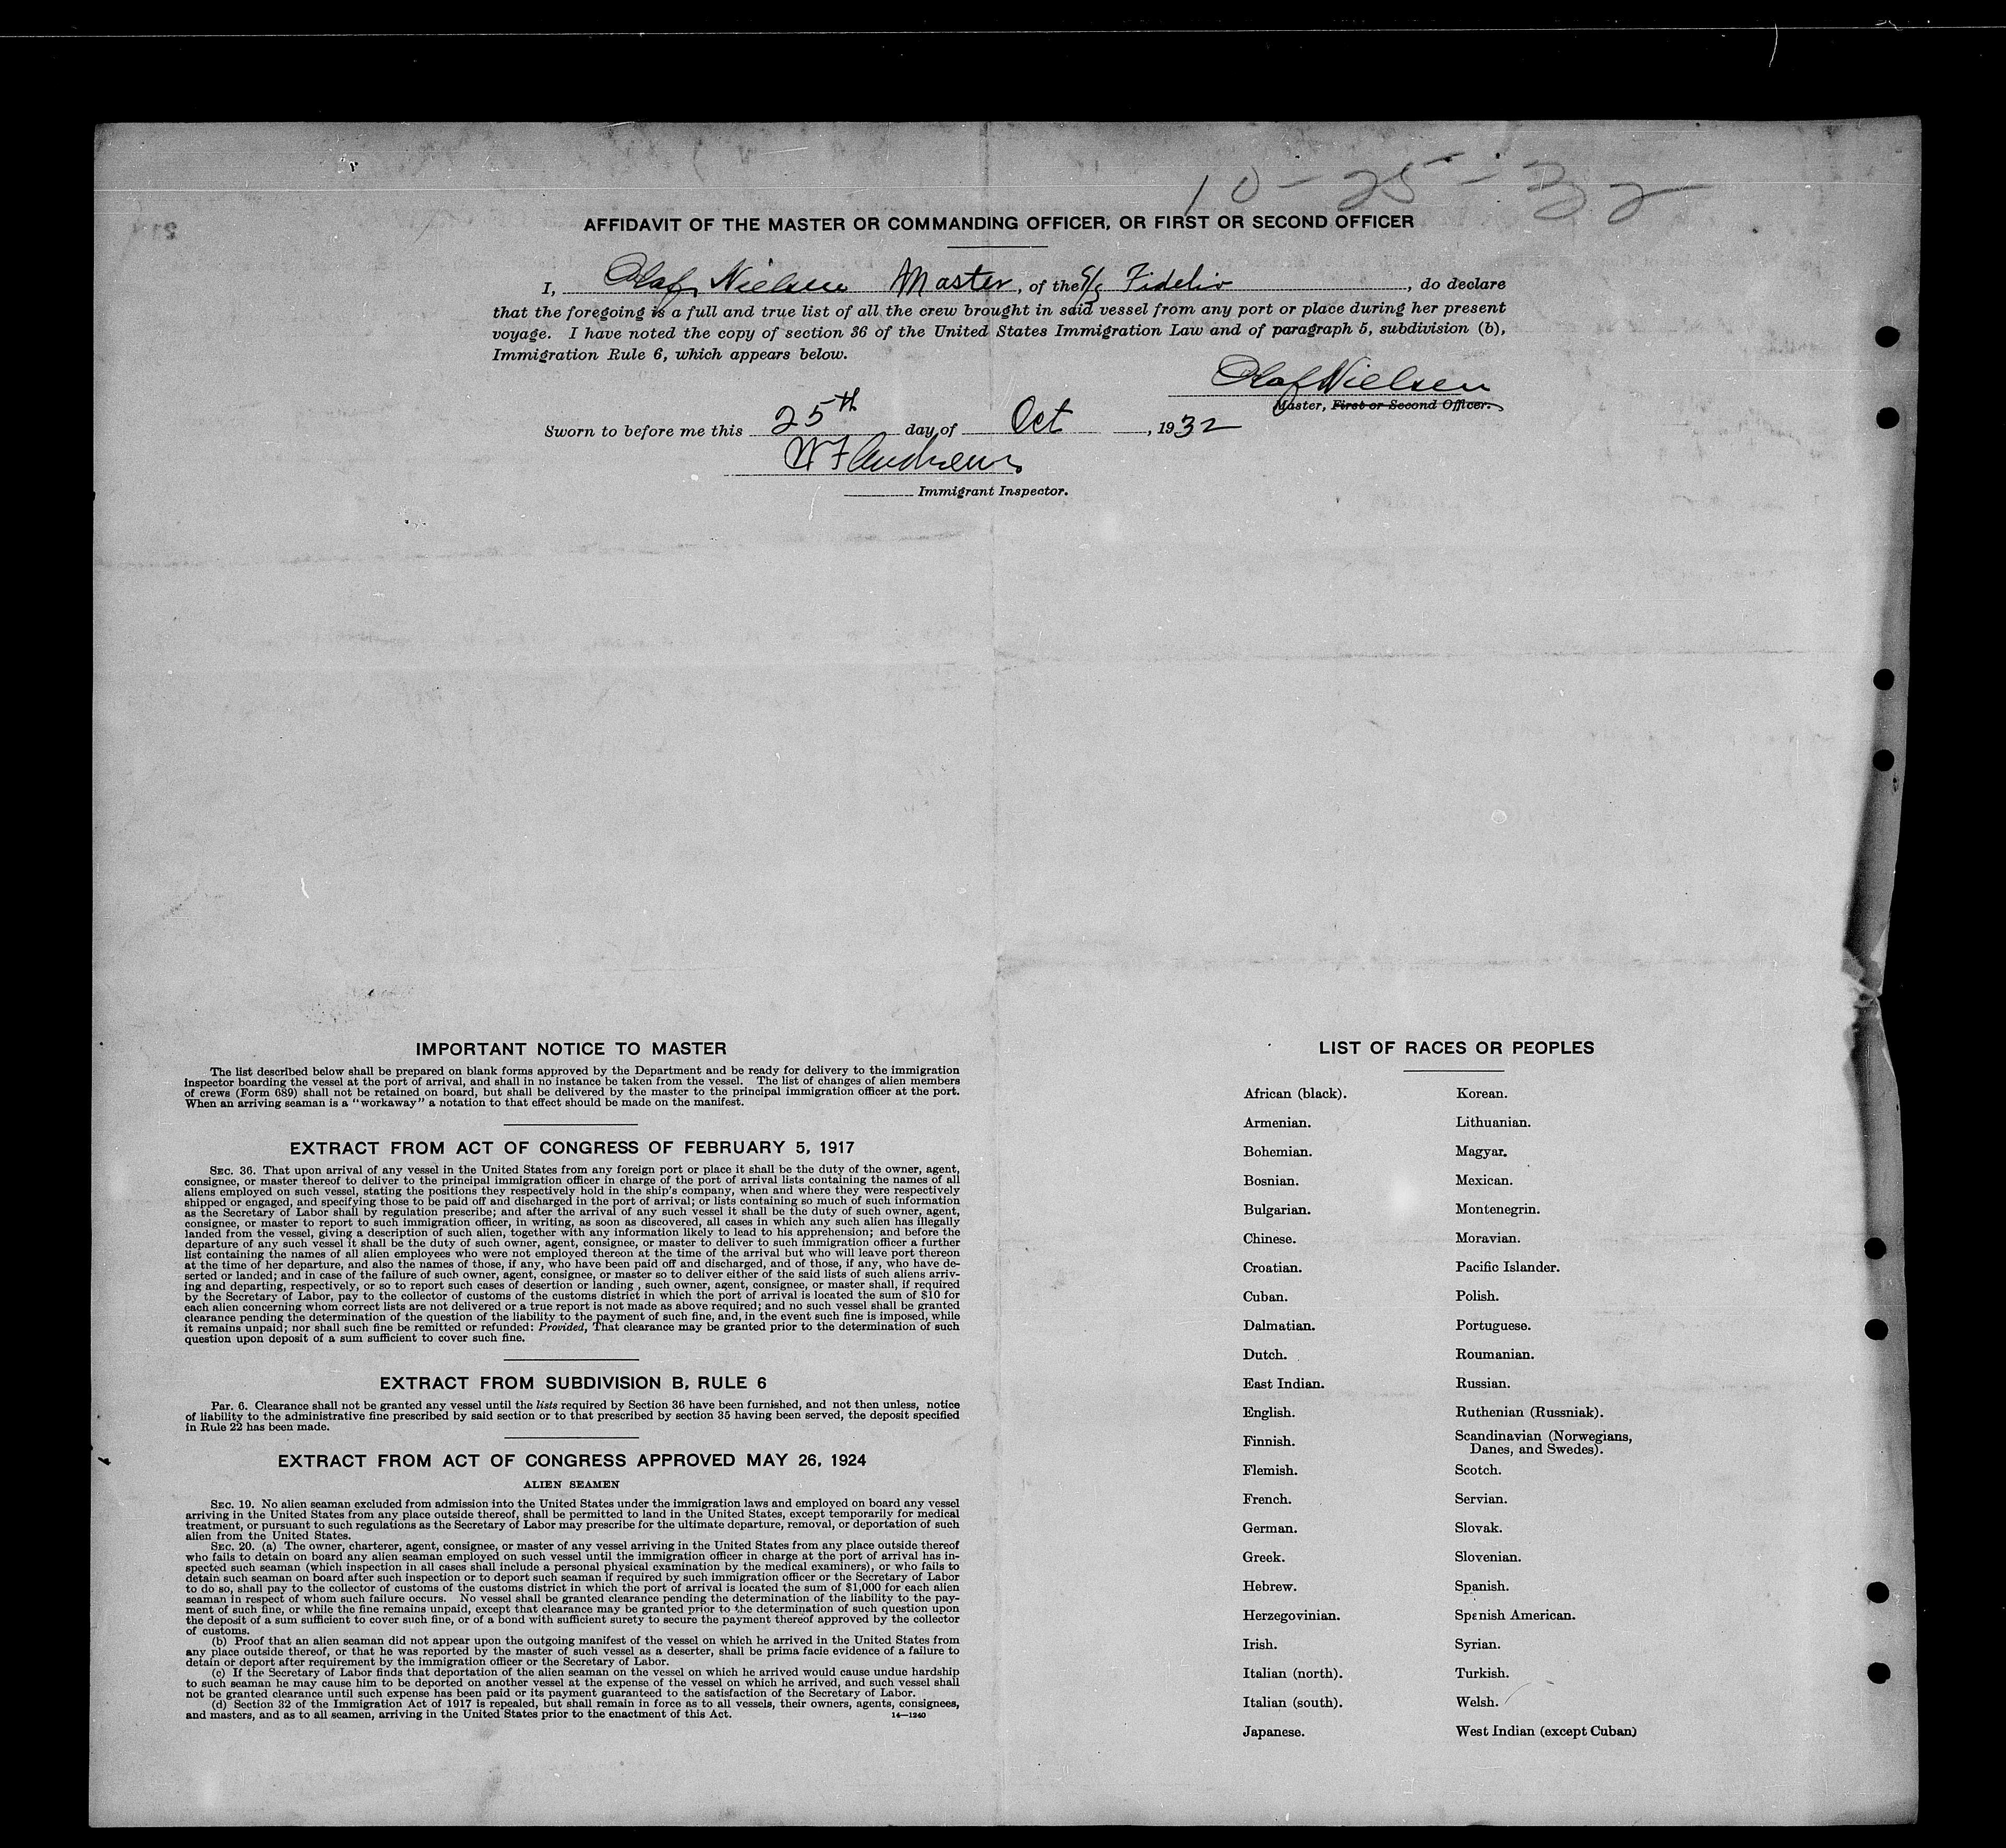 10-25-32
AFFIDAVIT OF THE MASTER OR COMMANDING OFFICER, OR FIRST OR SECOND OFFICER
I, Olaf Nielsen Master, of the S/S Fidelio, do declare
that the foregoing is a full and true list of all the crew brought in said vessel from any port or place during her present
voyage. I have noted the copy of section 36 of the United States Immigration Law and of paragraph 5, subdivision (b),
Immigration Rule 6, which appears below.
Olaf Nielsen
Master, First or Second Officer.
Sworn to before me this 25th day of Oct, 1932
W F Andrews
Immigrant Inspector.
IMPORTANT NOTICE TO MASTER
The list described below shall be prepared on blank forms approved by the Department and be ready for delivery to the immigration
inspector boarding the vessel at the port of arrival, and shall in no instance be taken from the vessel. The list of changes of alien members
of crews (Form 689) shall not be retained on board, but shall be delivered by the master to the principal immigration officer at the port.
When an arriving seaman is a "workaway" a notation to that effect should be made on the manifest.
EXTRACT FROM ACT OF CONGRESS OF FEBRUARY 5, 1917
SEC. 36. That upon arrival of any vessel in the United States from any foreign port or place it shall be the duty of the owner, agent,
consignee, or master thereof to deliver to the principal immigration officer in charge of the port of arrival lists containing the names of all
aliens employed on such vessel, stating the positions they respectively hold in the ship's company, when and where they were respectively
shipped or engaged, and specifying those to be paid off and discharged in the port of arrival; or lists containing so much of such information
as the Secretary of Labor shall by regulation prescribe; and after the arrival of any such vessel it shall be the duty of such owner, agent,
consignee, or master to report to such immigration officer, in writing, as soon as discovered, all cases in which any such alien has illegally
landed from the vessel, giving a description of such alien, together with any information likely to lead to his apprehension; and before the
departure of any such vessel it shall be the duty of such owner, agent, consignee, or master to deliver to such immigration officer a further
list containing the names of all alien employees who were not employed thereon at the time of the arrival but who will leave port thereon
at the time of her departure, and also the names of those, if any, who have been paid off and discharged, and of those, if any, who have de-
serted or landed; and in case of the failure of such owner, agent, consignee, or master so to deliver either of the said lists of such aliens arriv-
ing and departing, respectively, or so to report such cases of desertion or landing , such owner, agent, consignee, or master shall, if required
by the Secretary of Labor, pay to the collector of customs of the customs district in which the port of arrival is located the sum of $10 for
each alien concerning whom correct lists are not delivered or a true report is not made as above required; and no such vessel shall be granted
clearance pending the determination of the question of the liability to the payment of such fine, and, in the event such fine is imposed, while
it remains unpaid; nor shall such fine be remitted or refunded: Provided, That clearance may be granted prior to the determination of such
question upon deposit of a sum sufficient to cover such fine.
EXTRACT FROM SUBDIVISION B, RULE 6
Par. 6. Clearance shall not be granted any vessel until the lists required by Section 36 have been furnished, and not then unless, notice
of liability to the administrative fine prescribed by said section or to that prescribed by section 35 having been served, the deposit specified
in Rule 22 has been made.
EXTRACT FROM ACT OF CONGRESS APPROVED MAY 26, 1924
ALIEN SEAMEN
SEC. 19. No alien seaman excluded from admission into the United States under the immigration laws and employed on board any vessel
arriving in the United States from any place outside thereof, shall be permitted to land in the United States, except temporarily for medical
treatment, or pursuant to such regulations as the Secretary of Labor may prescribe for the ultimate departure, removal, or deportation of such
alien from the United States.
SEC. 20. (a) The owner, charterer, agent, consignee, or master of any vessel arriving in the United States from any place outside thereof
who fails to detain on board any alien seaman employed on such vessel until the immigration officer in charge at the port of arrival has in-
spected such seaman (which inspection in all cases shall include a personal physical examination by the medical examiners), or who fails to
detain such seaman on board after such inspection or to deport such seaman if required by such immigration officer or the Secretary of Labor
to do so, shall pay to the collector of customs of the customs district in which the port of arrival is located the sum of $1,000 for each alien
seaman in respect of whom such failure occurs. No vessel shall be granted clearance pending the determination of the liability to the pay-
ment of such fine, or while the fine remains unpaid, except that clearance may be granted prior to the determination of such question upon
the deposit of a sum sufficient to cover such fine, or of a bond with sufficient surety to secure the payment thereof approved by the collector
of customs.
(b) Proof that an alien seaman did not appear upon the outgoing manifest of the vessel on which he arrived in the United States from
any place outside thereof, or that he was reported by the master of such vessel as a deserter, shall be prima facie evidence of a failure to
detain or deport after requirement by the immigration officer or the Secretary of Labor.
(c) If the Secretary of Labor finds that deportation of the alien seaman on the vessel on which he arrived would cause undue hardship
to such seaman he may cause him to be deported on another vessel at the expense of the vessel on which he arrived, and such vessel shall
not be granted clearance until such expense has been paid or its payment guaranteed to the satisfaction of the Secretary of Labor.
(d) Section 32 of the Immigration Act of 1917 is repealed, but shall remain in force as to all vessels, their owners, agents, consignees,
and masters, and as to all seamen, arriving in the United States prior to the enactment of this Act.
14—1240
LIST OF RACES OR PEOPLES
African (black).
Armenian.
Bohemian.
Bosnian.
Bulgarian.
Chinese.
Croatian.
Cuban.
Dalmatian.
Dutch.
East Indian.
English.
Finnish.
Flemish.
French.
German.
Greek.
Hebrew.
Herzegovinian.
Irish.
Italian (north).
Italian (south).
Japanese.
Korean.
Lithuanian.
Magyar.
Mexican.
Montenegrin.
Moravian.
Pacific Islander.
Polish.
Portuguese.
Roumanian.
Russian.
Ruthenian (Russniak).
Scandinavian (Norwegians,
Danes, and Swedes).
Scotch.
Servian.
Slovak.
Slovenian.
Spanish.
Spanish American.
Syrian.
Turkish.
Welsh.
West Indian (except Cuban)